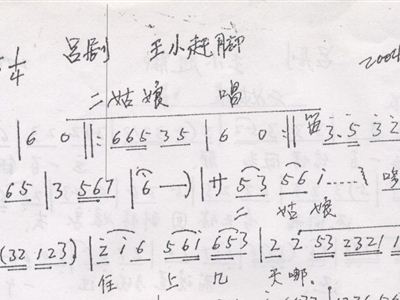 吕剧 王小赶脚 2004
二姑娘 唱
|6 0‖: 665 35 | 6 0 :‖ 3.5 32
65 | 3 567 | 6 —) | サ 53 561....
二 姑 娘
(32 123) | 2 i 6 561 653 | 2 2 53 2321 1
住 上 几 天哪.